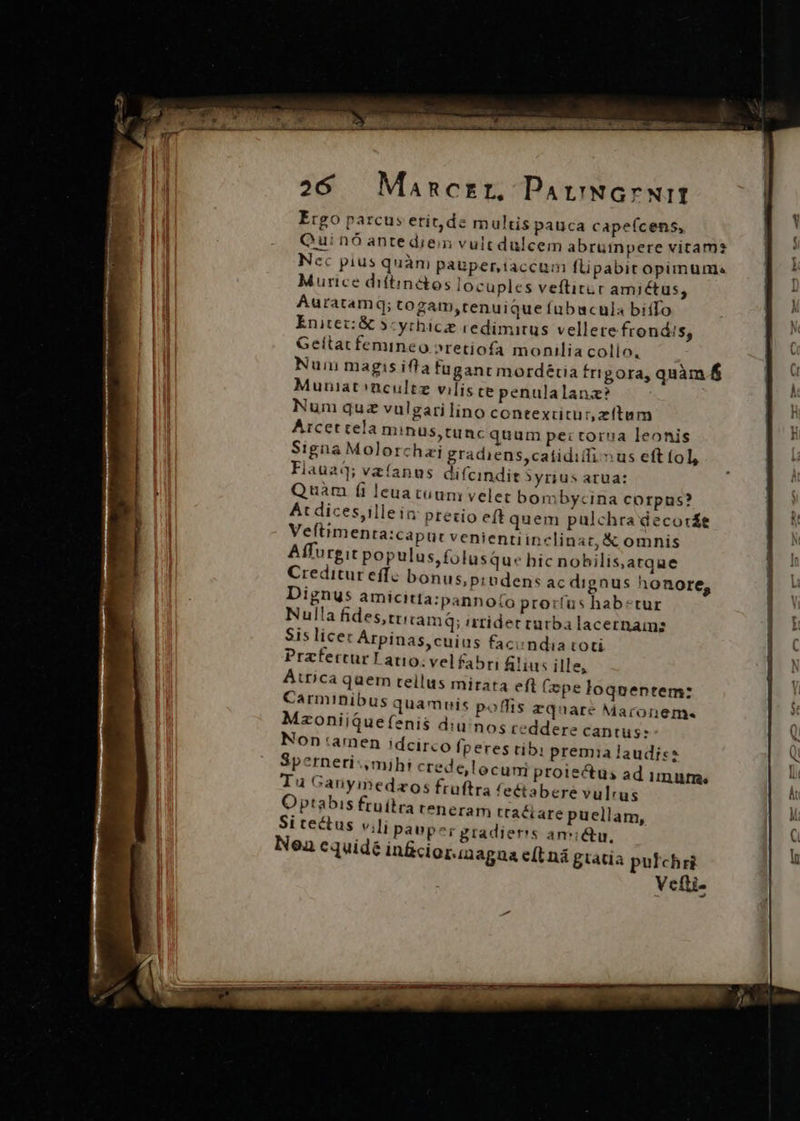 26 MARCEL. PALINGENII
Ergo parcus erit, de multis pauca capeſcens,
Qui nó ante diem vult dulcem abrumpere vitam?
Nec pius quàm pauper, iaccum ſtipabit opimum.
Murice diſtinctos locuples veſtitur amictus,
Auratamq; togam, tenuique ſubucula biſſo
Enitet: & Scyrhicæ redimitus vellere frondis,
Geſtat femineo pretiofa monilia collo.
Num magis iſta fugant mordētia frigora, quàm ſi
Muniat incultæ vilis te penula lanæ?
Num quæ vulgari lino contexitur, æſtum
Arcet tela minus, tunc quum per torua leonis
Signa Molorchæi gradiens, calidiſſimus eſt ſol,
Flauaq; væſanus diſcindit Syrius arua:
Quàm ſi leua tuum velet bombycina corpus?
At dices, ille in pretio eſt quem pulchra decorāt
Veſtimenta: caput venienti inclinat, & omnis
Aſſurgit populus, ſolusque hic nobilis, atque
Creditur eſſe bonus, prudens ac dignus honore,
Dignus amicitia: pannoſo prorſus habetur
Nulla fides, tritamq; irridet turba lacernam:
Sis licet Arpinas, cuius facundia toti
Præfertur Latio: vel fabri filius ille,
Attica quem tellus mirata eſt ſæpe loquentem:
Carminibus quamuis poſſis æquare Maronem.
Mæoniíque ſenis diuinos reddere cantus:
Non tamen idcirco ſperes tibi premia laudis:
Sperneris, mihi crede, locum proiectus ad imum.
Tu Ganymedæos fruſtra ſectabere vultus
Optabis fruſtra teneram tractare puellam,
Si tectus vili pauper gradieris amictu.
Non equidē inficior. magna eſt nā gratia pulchri
Veſti-